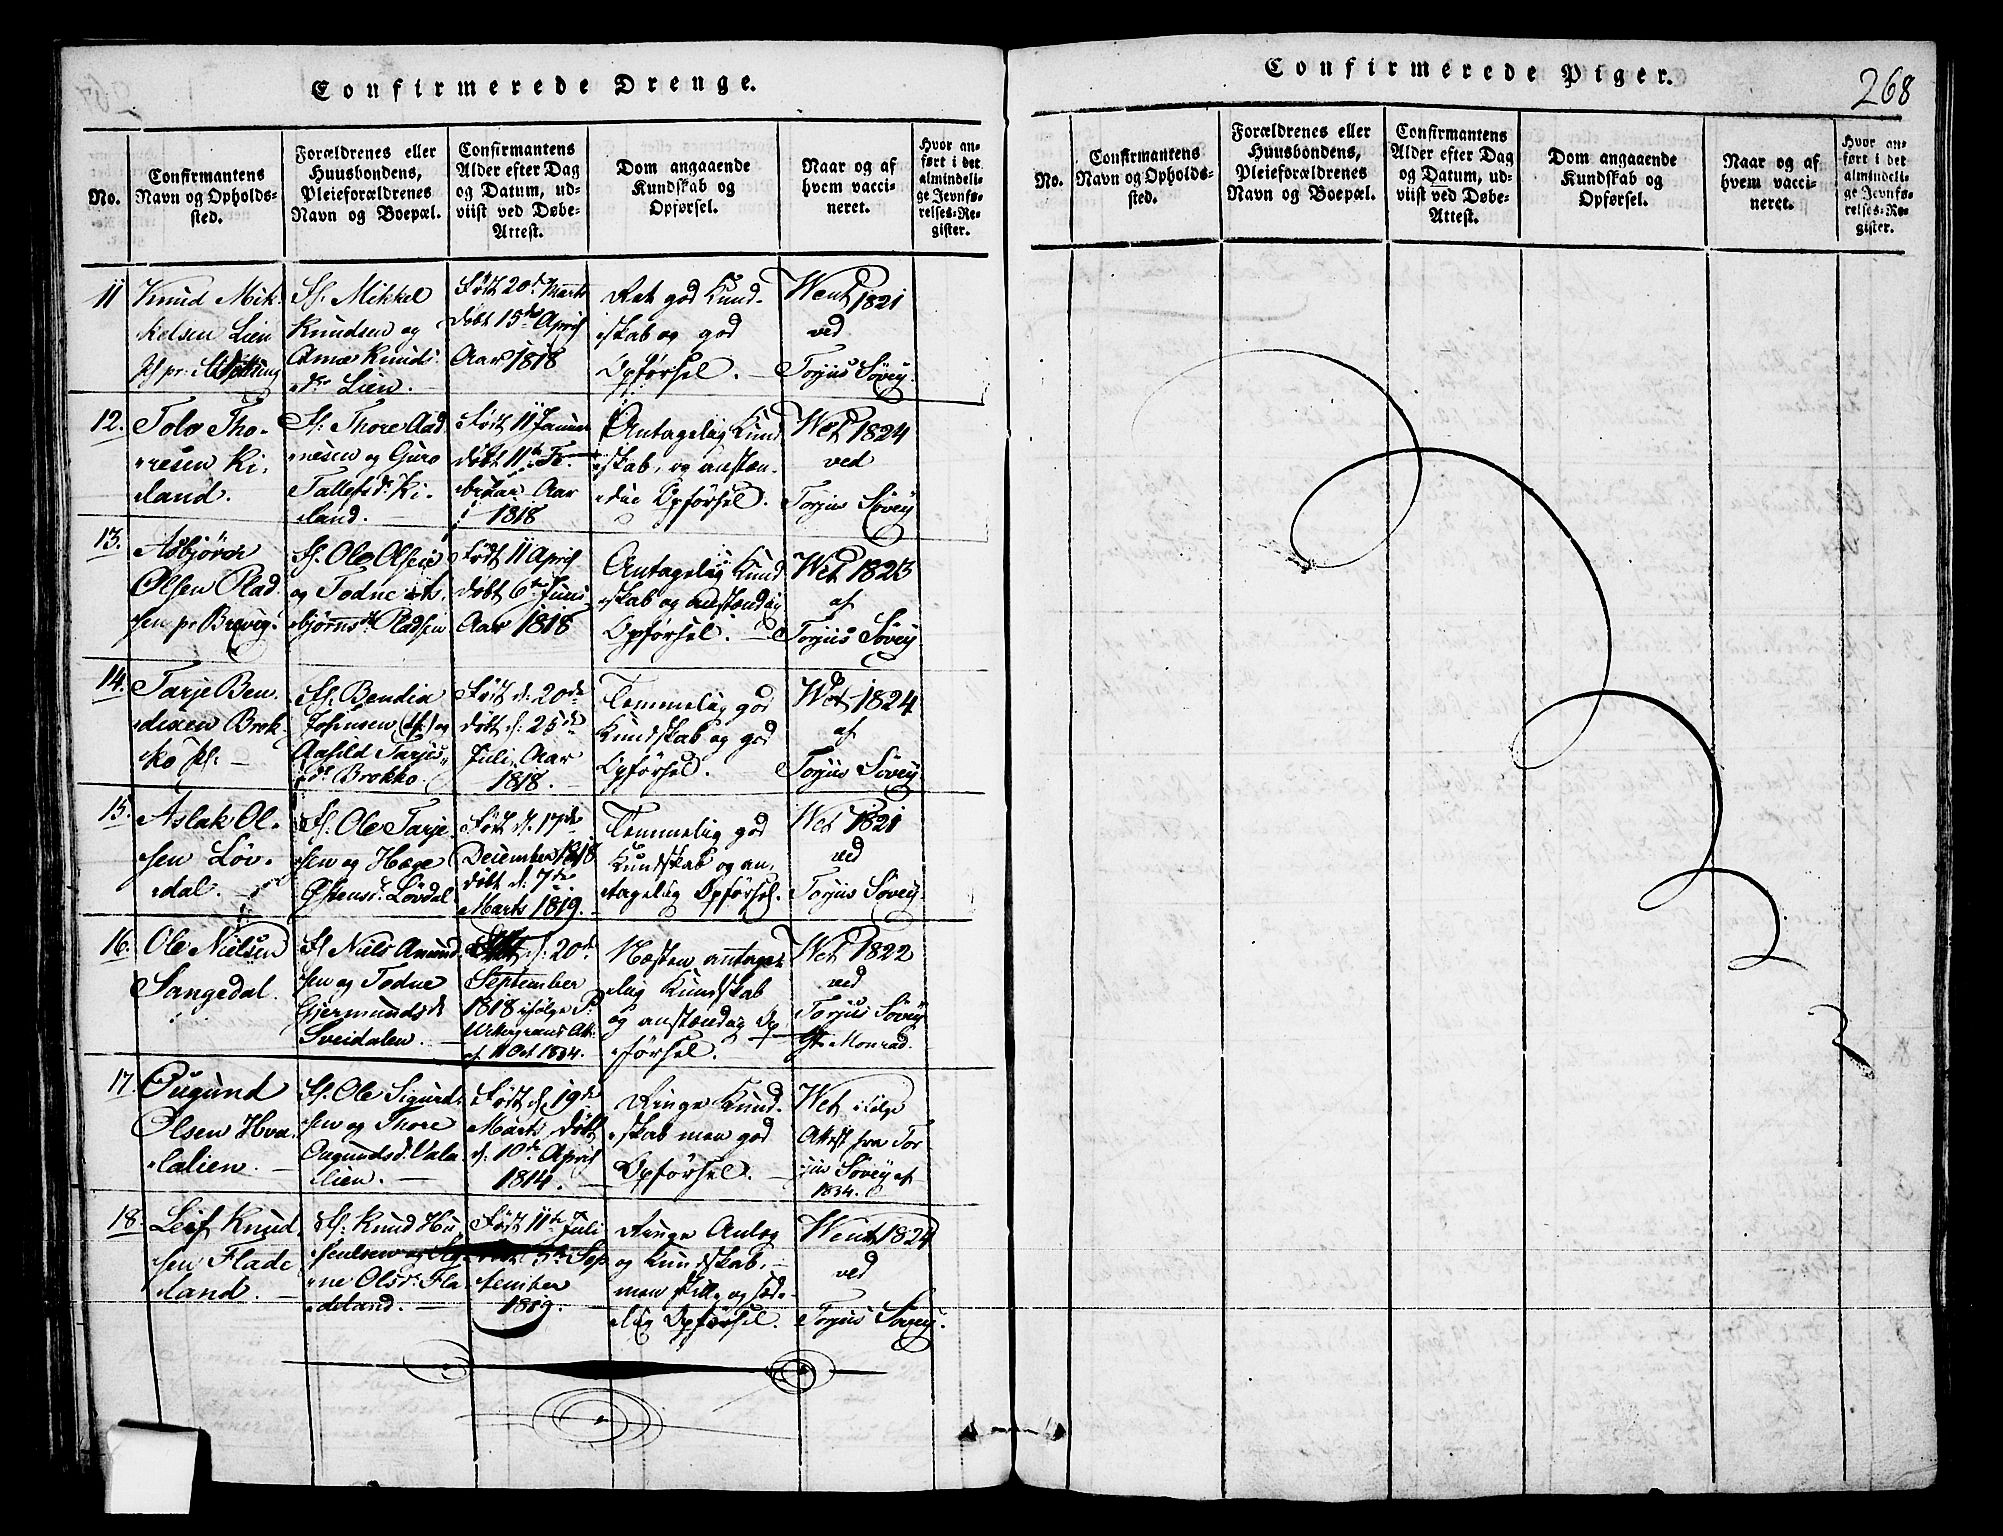 Confirmerede Drenge.
No.
Confirmantens
Navn og Opholds-
sted.
Forældrenes eller
Huusbondens,
Pleieforældrenes
Navn og Boepæl.
Confirmantens
Alder efter Dag
og Datum, ud-
viist ved Døbe-
Attest.
Dom angaaende
Kundskab og
Opførsel.
Naar og af
hvem vacci-
neret.
Hvor an-
ført i det
almindeli-
ge Jevnfø-
relses-Re-
gister.
11
Knud Mik-
kelsen Lien
F. Mikkel
Knudsen og
Knuds-
dr Lien.
Født 20de Marts
døbt 15de April
Aar 1818
Ret god Kund-
skab og god
Opførsel. —
Vent 1821
ved
Torjus Søvey.
12.
Tolv Tho-
resen Ki-
land.
F. Thore Aad-
nesen og Guro
Tallefsdr Ki-
land. —
Født 11 Januar
døbt 11te Fe-
bruar Aar
1818
Antagelig Kund
skab, og anstæn-
dig Opførsel.
Vet 1824
ved
Torjus Søvey
13.
Asbjørn
Olsen Plad
sen pr Brevig.
F. Ole Olsen
og Todne As-
bjørnsdr Pladsen
Født 11 April
døbt 6te Juni
Aar 1818
Antagelig Kund
skab og anstændig
Opførsel. —
Vet 1823
af
Torjus Søvey
14.
Tarje Ben-
dixen Brok-
ko
F. Bendix
og
Aasild Tarjus-
dr Brokko.
Født d. 20de
døbt d. 25de
Juli Aar
1818. —
Temmelig god
Kundskab og god
Opførsel.
Vet 1824
af
Torjus Søvey
15.
Aslak Ol-
sen Løv-
dal. —
F. Ole Tarje-
sen og Hæge
Østensdr Løvdal
Født d. 17de
December 1818
døbt d. 7de
Marts 1819. —
Temmelig god
Kundskab og an-
tagelig Opførsel.
Vet 1821
ved
Torjus Søvey
16.
Ole Nielsen
Sangedal.
F. Niels Amund
sen og Todne
Gjermundsdr
Sveidalen. —
d. 20de
September
1818 ifølge P.
af 11 Oct 1834.
Næsten antage-
lig Kundskab
og anstændig Op
førsel.
Vet 1822
ved
Torjus Søvey
Monrad.
17
Ougund
Olsen Hva-
lalien. —
F. Ole Sigurd-
sen og Thore
Ougundsdr Vala-
lien. —
Født d. 19de
Marts døbt
d. 10de April
1814. —
Ringe Kund-
skab men god
Opførsel. —
Vet ifølge
Attest fra Tor
jus Søvey af
1834.
18.
Leif Knud-
sen Flade
land. —
F. Knud
og
ne Olsdr Fla-
deland. —
Født 11te Juli
døbt 5te Sep-
tember
1819.
Ringe Anlæg
og Kundskab,
men stille og sæde-
lig Opførsel.
Vent 1824
ved
Torjus Søvey.
Confirmerede Piger.
268
No.
Confirmantens
Navn og Opholds-
sted.
Forældrenes eller
Huusbondens,
Pleieforældrenes
Navn og Boepæl.
Confirmantens
Alder efter Dag
og Datum, ud-
viist ved Døbe-
Attest.
Dom angaaende
Kundskab og
Opførsel.
Naar og af
hvem vacci-
neret.
Hvor an-
ført i det
almindeli-
ge Jevnfø-
relses-Re-
gister.